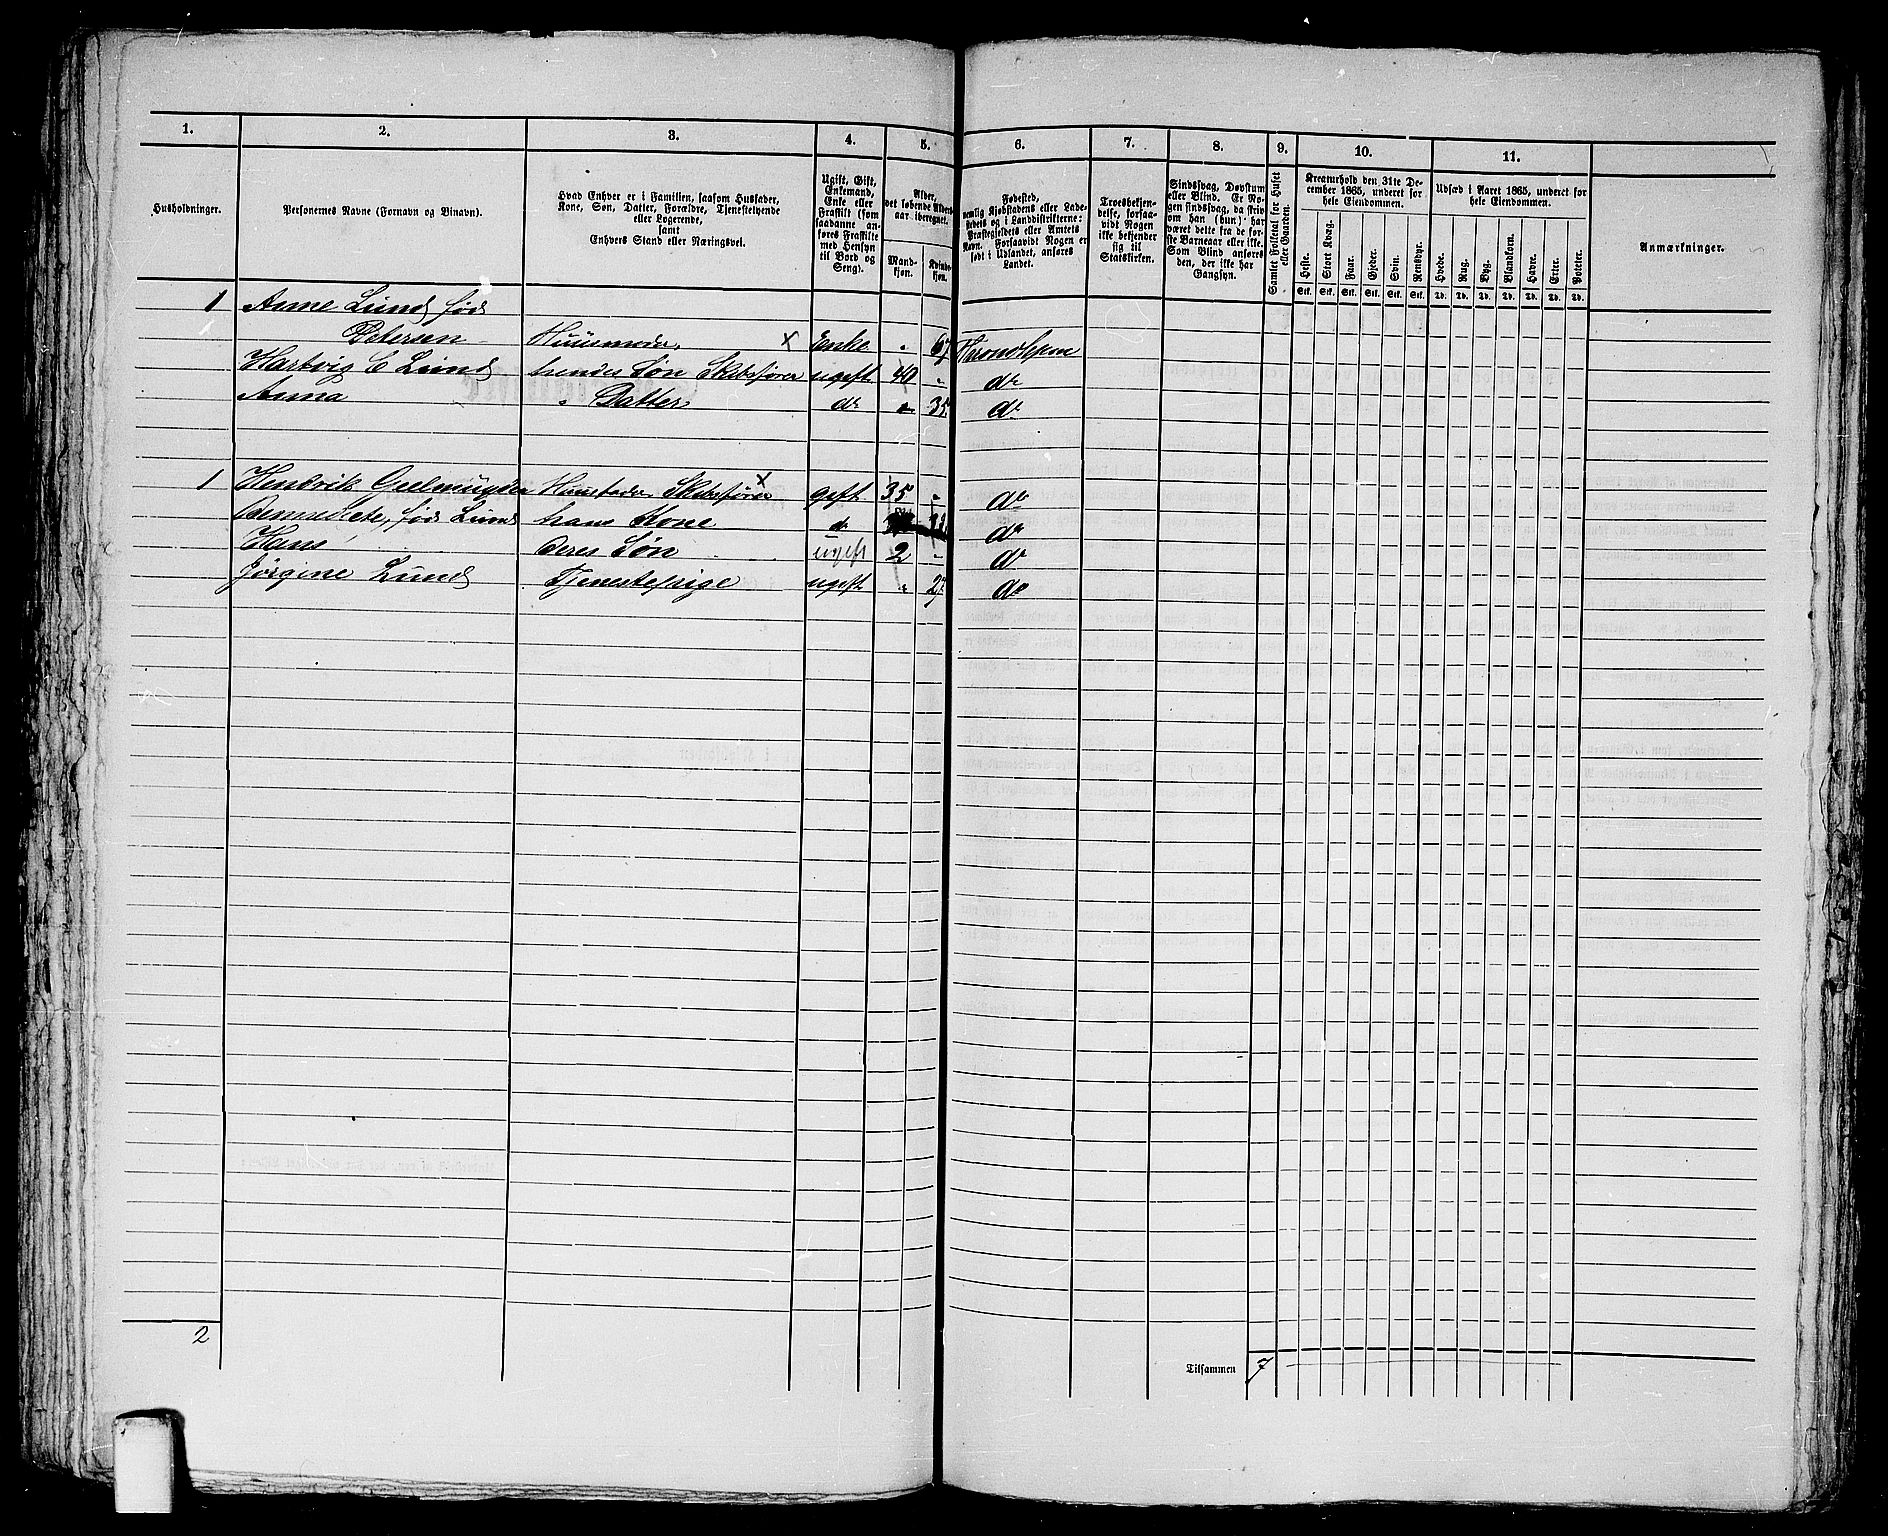 1. 2. 3. 4. 5. 6. 7. 8. 9. 10. 11.
Husholdninger.
Personernes Navne (Fornavn og Binavn).
Hvad Enhver er i Familien, saasom Husfader,
Kone, Søn, Datter, Forældre, Tjenestetyende
eller Logerende,
samt
Enhvers Stand eller Næringsvei.
Ugift, Gift,
Enkemand,
Enke eller
Fraskilt (som
saadanne an-
føres Fraskilte
med Hensyn
til Bord og
Seng).
Alder,
det løbende Alders-
aar iberegnet.
Mand-
kjøn.
Kvinde-
kjøn.
Fødested,
nemlig Kjøbstadens eller Lade-
stedets og i Landdistrikterne:
Præstegjeldets eller Amtets
Navn. Forsaavidt Nogen er
født i Udlandet, anføres
Landet.
Troesbekjen-
delse, forsaa-
vidt Nogen
ikke bekjender
sig til
Statskirken.
Sindssvag, Døvstum
eller Blind. Er No-
gen sindssvag, da skriv
om han (hun) har
været dette fra de før-
ste Barneaar eller ikke.
Som Blind anføres
den, der ikke har
Gangsyn.
Samlet Folketal for Huset
eller Gaarden.
Kreaturhold den 31te De-
cember 1865, underet for
hele Eiendommen.
Heste. Stort Kvæg. Faar. Gjeder. Svin. Rensdyr.
Stk. Stk. Stk. Stk. Stk. Stk.
Udsæd i Aaret 1865, underet for
hele Eiendommen.
Hvede. Rug. Byg. Blandkorn. Havre. Erter. Poteter.
Td. Td. Td. Td. Td. Td. Td.
Anmærkninger.
1 Anne Lund, fød
Petersen Huusmoder x Enke " 67 Throndhjem
Hartvig C Lund hendes Søn Skibsfører ugift 40 " do
Anna " Datter do " 35 do
1 Hendrik Geelmuyden Huusfader Skibsfører x gift 35 " do
Bennedicte, fød Lund hans Kone do do
Hans deres Søn ugift 2 - do
Jørgine Lund Tjenestepige ugift " 27 do
2
Tilsammen 7